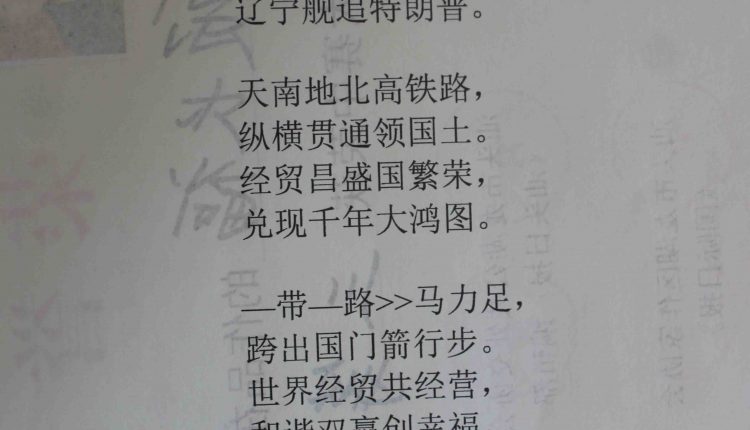 辽宁舰追特朗普。
天南地北高铁路，
纵横贯通领国土。
经贸昌盛国繁荣，
兑现千年大鸿图。
—带—路>>马力足，
跨出国门箭行步。
世界经贸共经营，
和谐双赢创幸福